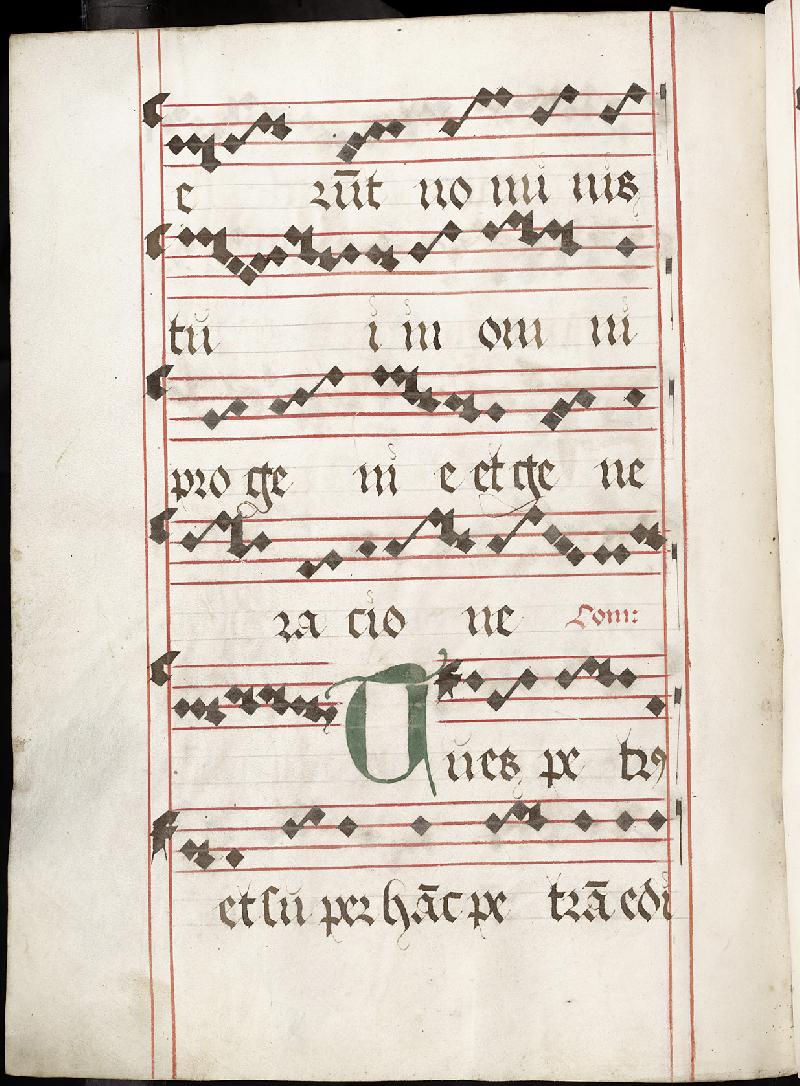 e rūt no mi nis
tu i in om ni
pro ge ni e et ge ne
ra cio ne Com:
Tu es pe trꝰ
et su per hāc pe trā edi